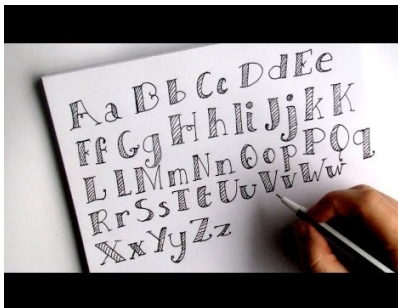 A a B b C c D d E e
F f G g H h I i J j k K
L l M m N n O o p P Q q
R r S s T t U u V v W w
X x Y y Z z